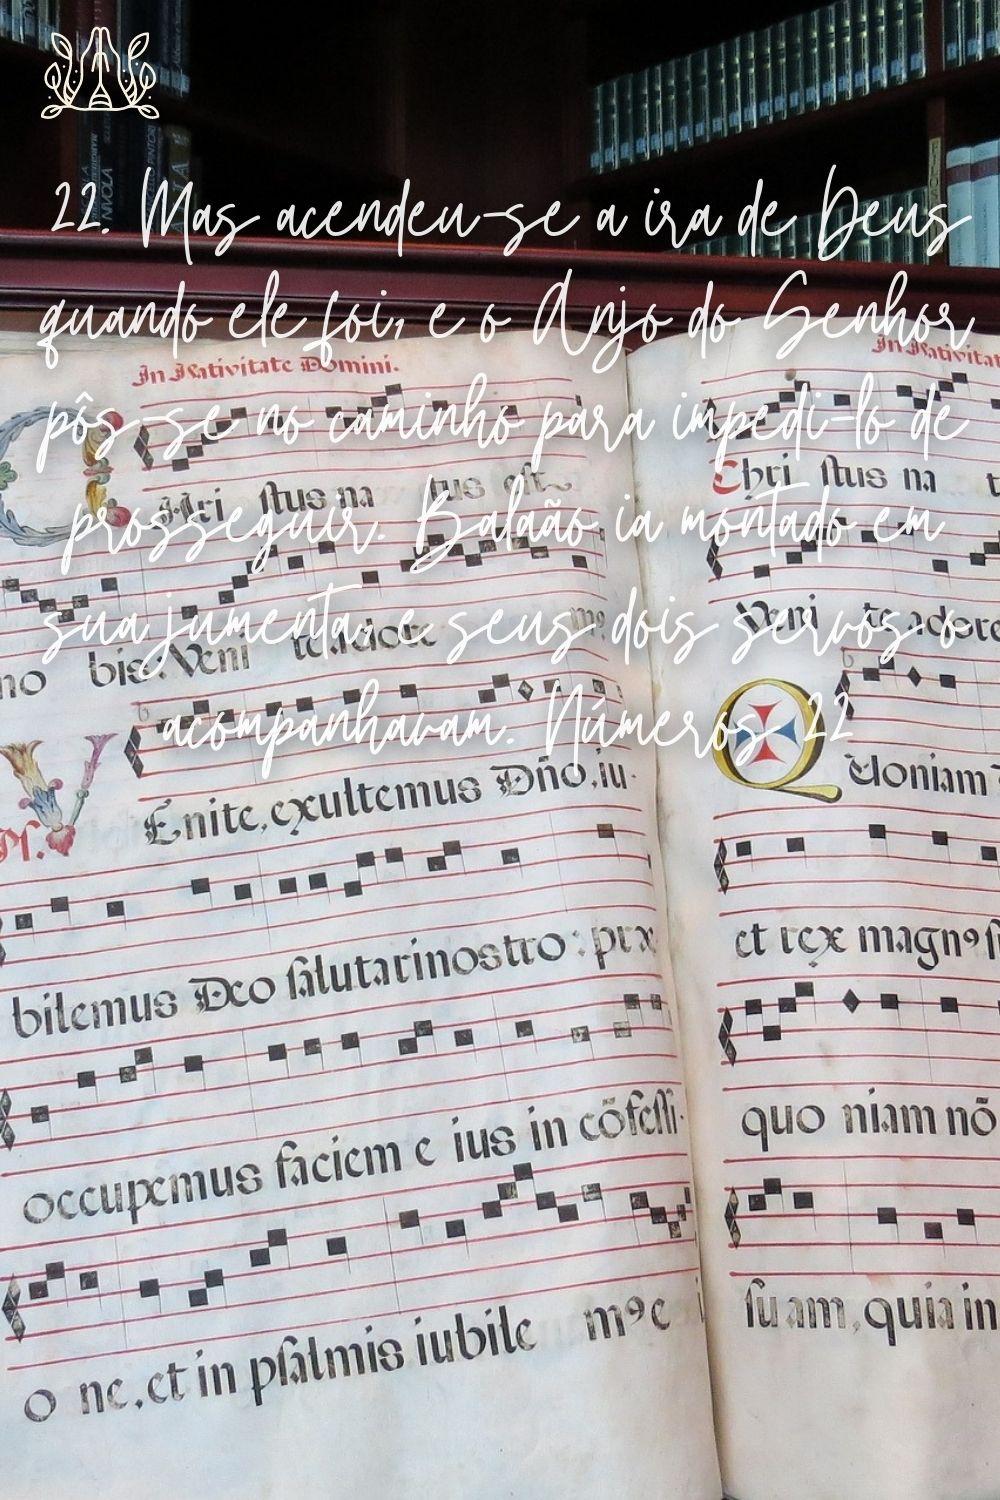 22. Mas acendeu-se a ira de Deus
quando ele foi, e o Anjo do Senhor
pôs-se no caminho para impedi-lo de
prosseguir. Balaão ia montado em
sua jumenta, e seus dois servos o
acompanhavam. Números 22
In Nativitate Domini.
CHri stus na tus est
no bis: Veni te adote
Ps.
VEnite, exultemus Dño, iu-
bilemus Deo salutari nostro: præ
occupemus faciem e ius in cõfessi-
o ne, et in psalmis iubile mꝰ e i
In Nativitat
Chri stus na t
Veni te adore
QUoniam
et rex magnꝰ s
quo niam nõ
su am, quia in